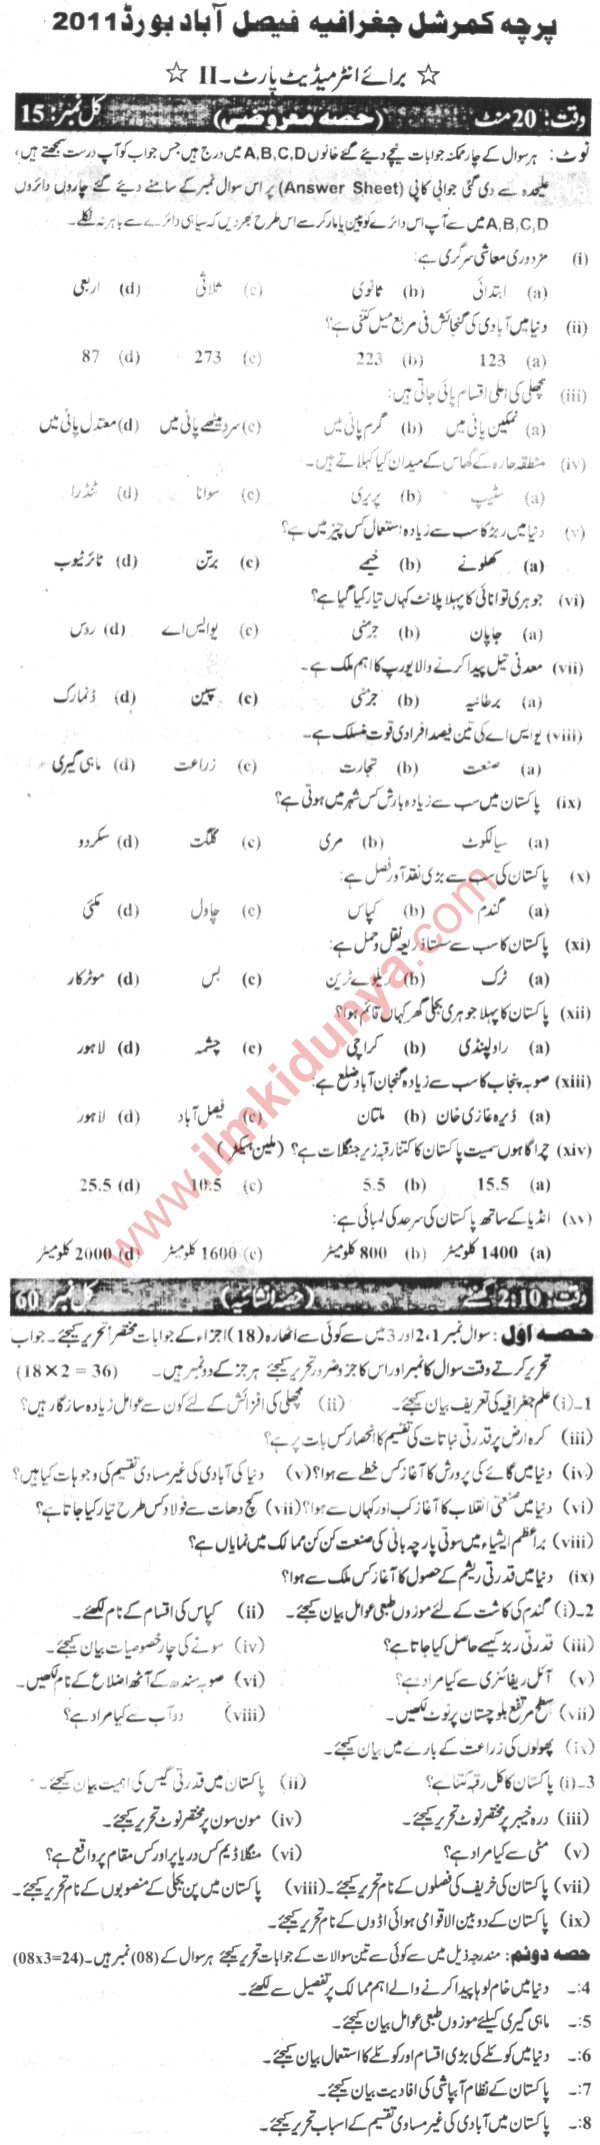 پرچہ کمرشل جغرافیہ فیصل آباد بورڈ 2011
☆ برائے انٹرمیڈیٹ پارٹ۔ II ☆
وقت: 20 منٹ (حصہ معروضی) کل نمبر: 15
نوٹ: ہر سوال کے چار ممکنہ جوابات نیچے دیئے گئے خانوں A,B,C,D میں درج ہیں جس جواب کو آپ درست سمجھتے ہیں،
علیحدہ سے دی گئی جوابی کاپی (Answer Sheet) پر اس سوال نمبر کے سامنے دیئے گئے چاروں دائروں
A,B,C,D میں سے آپ اس دائرے کو پین یا مارکر سے اس طرح بھر دیں کہ سیاہی دائرے سے باہر نہ نکلے۔
(i) مزدوری معاشی سرگری ہے:
(a) ابتدائی (b) ثانوی (c) ثلاثی (d) اربعی
(ii) دنیا میں آبادی کی گنجائش فی مربع میل کتنی ہے؟
(a) 123 (b) 223 (c) 273 (d) 87
(iii) مچھلی کی اعلی اقسام پائی جاتی ہیں:
(a) نمکین پانی میں (b) گرم پانی میں (c) سرد میٹھے پانی میں (d) معتدل پانی میں
(iv) منطقہ حارہ کے گھاس کے میدان کیا کہلاتے ہیں۔
(a) سٹیپ (b) پریری (c) سوانا (d) ٹنڈرا
(v) دنیا میں ربڑ کا سب سے زیادہ استعمال کس چیز میں ہے؟
(a) کھلونے (b) خیمے (c) برتن (d) ٹائر ٹیوب
(vi) جوہری توانائی کا پہلا پلانٹ کہاں تیار کیا گیا ہے؟
(a) جاپان (b) جرمنی (c) یو ایس اے (d) روس
(vii) معدنی تیل پیدا کرنے والا یورپ کا اہم ملک ہے۔
(a) برطانیہ (b) جرمنی (c) سپین (d) ڈنمارک
(viii) یو ایس اے کی تین فیصد افرادی قوت منسلک ہے۔
(a) صنعت (b) تجارت (c) زراعت (d) ماہی گیری
(ix) پاکستان میں سب سے زیادہ بارش کس شہر میں ہوتی ہے؟
(a) سیالکوٹ (b) مری (c) گلگت (d) سکردو
(x) پاکستان کی سب سے بڑی نقد آور فصل ہے:
(a) گندم (b) کپاس (c) چاول (d) مکئی
(xi) پاکستان کا سب سے سستا ذریعہ نقل و حمل ہے:
(a) ٹرک (b) ریلوے ٹرین (c) بس (d) موٹرکار
(xii) پاکستان کا پہلا جوہری بجلی گھر کہاں قائم ہوا؟
(a) راولپنڈی (b) کراچی (c) چشمہ (d) لاہور
(xiii) صوبہ پنجاب کا سب سے زیادہ گنجان آباد ضلع ہے:
(a) ڈیرہ غازی خان (b) ملتان (c) فیصل آباد (d) لاہور
(xiv) چراگاہوں سمیت پاکستان کا کتنا رقبہ زیر جنگلات ہے؟ (ملین ہیکٹر)
(a) 15.5 (b) 5.5 (c) 10.5 (d) 25.5
(xv) انڈیا کے ساتھ پاکستان کی سرحد کی لمبائی ہے:
(a) 1400 کلومیٹر (b) 800 کلومیٹر (c) 1600 کلومیٹر (d) 2000 کلومیٹر
وقت: 2:10 گھنٹے (حصہ انشائیہ) کل نمبر: 60
حصہ اوّل: سوال نمبر 2،1 اور 3 میں سے کوئی سے اٹھارہ (18) اجزاء کے جوابات مختصراً تحریر کیجئے۔ جواب
تحریر کرتے وقت سوال کا نمبر اور اس کا جز و ضرور تحریر کیجئے ہر جز کے دو نمبر ہیں۔ (18×2 = 36)
1۔ (i) علم جغرافیہ کی تعریف بیان کیجئے۔ (ii) مچھلی کی افزائش کے لئے کون سے عوامل زیادہ سازگار ہیں؟
(iii) کرہ ارض پر قدرتی نباتات کی تقسیم کا انحصار کس بات پر ہے؟
(iv) دنیا میں گائے کی پرورش کا آغاز کس خطے سے ہوا؟ (v) دنیا کی آبادی کی غیر مساوی تقسیم کی وجوہات کیا ہیں؟
(vi) دنیا میں صنعتی انقلاب کا آغاز کب اور کہاں سے ہوا؟ (vii) کچ دھات سے فولاد کس طرح تیار کیا جاتا ہے؟
(viii) براعظم ایشیاء میں سوتی پارچہ بانی کی صنعت کن کن ممالک میں نمایاں ہے؟
(ix) دنیا میں قدرتی ریشم کے حصول کا آغاز کس ملک سے ہوا؟
2۔ (i) گندم کی کاشت کے لئے موزوں طبعی عوامل بیان کیجئے۔ (ii) کپاس کی اقسام کے نام لکھئے۔
(iii) قدرتی ربڑ کیسے حاصل کیا جاتا ہے؟ (iv) سونے کی چار خصوصیات بیان کیجئے۔
(v) آئل ریفائنری سے کیا مراد ہے؟ (vi) صوبہ سندھ کے آٹھ اضلاع کے نام لکھیں۔
(vii) سطح مرتفع بلوچستان پر نوٹ لکھیں۔ (viii) دوآب سے کیا مراد ہے؟
(ix) پھولوں کی زراعت کے بارے میں بیان کیجئے۔
3۔ (i) پاکستان کا کل رقبہ کتنا ہے؟ (ii) پاکستان میں قدرتی گیس کی اہمیت بیان کیجئے۔
(iii) درہ خیبر پر مختصر نوٹ تحریر کیجئے۔ (iv) مون سون پر مختصر نوٹ تحریر کیجئے۔
(v) مٹی سے کیا مراد ہے؟ (vi) منگلا ڈیم کس دریا پر اور کس مقام پر واقع ہے؟
(vii) پاکستان کی خریف کی فصلوں کے نام تحریر کیجئے۔ (viii) پاکستان میں پن بجلی کے منصوبوں کے نام تحریر کیجئے۔
(ix) پاکستان کے دو بین الاقوامی ہوائی اڈوں کے نام تحریر کیجئے۔
حصہ دوئم: مندرجہ ذیل میں سے کوئی سے تین سوالات کے جوابات تحریر کیجئے ہر سوال کے (08) نمبر ہیں۔ (08x3=24)
4:۔ دنیا میں خام لوہا پیدا کرنے والے اہم ممالک پر تفصیل سے لکھئے۔
5:۔ ماہی گیری کیلئے موزوں طبعی عوامل بیان کیجئے۔
6:۔ دنیا میں کوئلے کی بڑی اقسام اور کوئلے کا استعمال بیان کیجئے۔
7:۔ پاکستان کے نظام آبپاشی کی افادیت بیان کیجئے۔
8:۔ پاکستان میں آبادی کی غیر مساوی تقسیم کے اسباب تحریر کیجئے۔
www.ilmkidunya.com